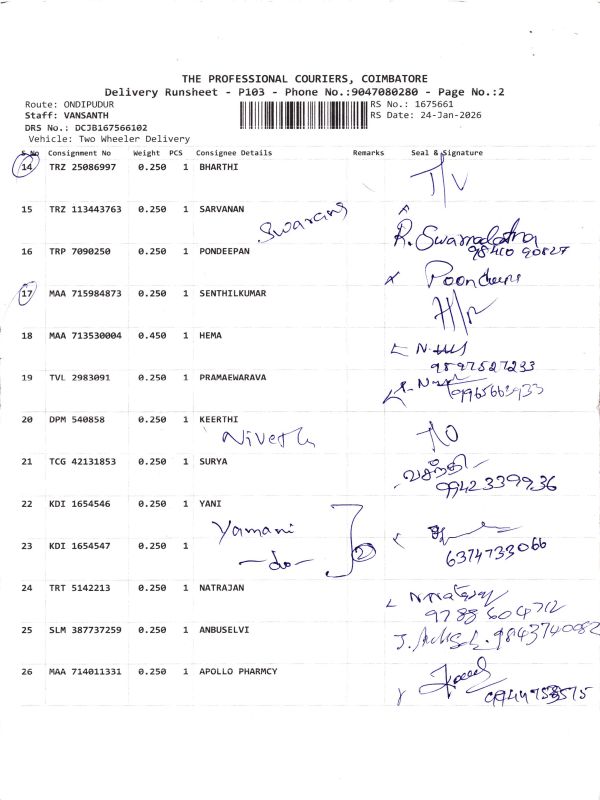 THE PROFESSIONAL COURIERS, COIMBATORE
Delivery Runsheet - P103 - Phone No.:9047080280 - Page No.:2
Route: ONDIPUDUR RS No.: 1675661
Staff: VANSANTH RS Date: 24-Jan-2026
DRS No.: DCJB167566102
Vehicle: Two Wheeler Delivery
S.No Consignment No Weight PCS Consignee Details Remarks Seal & Signature
14 TRZ 25086997 0.250 1 BHARTHI
15 TRZ 113443763 0.250 1 SARVANAN
R. Swarnalatha
98410 90827
16 TRP 7090250 0.250 1 PONDEEPAN
17 MAA 715984873 0.250 1 SENTHILKUMAR
18 MAA 713530004 0.450 1 HEMA
9597527233
19 TVL 2983091 0.250 1 PRAMAEWARAVA
20 DPM 540858 0.250 1 KEERTHI
21 TCG 42131853 0.250 1 SURYA வசந்தி
9942339936
22 KDI 1654546 0.250 1 YANI
Yamani 2
23 KDI 1654547 0.250 1
-do- 6374733066
24 TRT 5142213 0.250 1 NATRAJAN
9788604712
25 SLM 387737259 0.250 1 ANBUSELVI 9843740082
26 MAA 714011331 0.250 1 APOLLO PHARMCY
9944753575